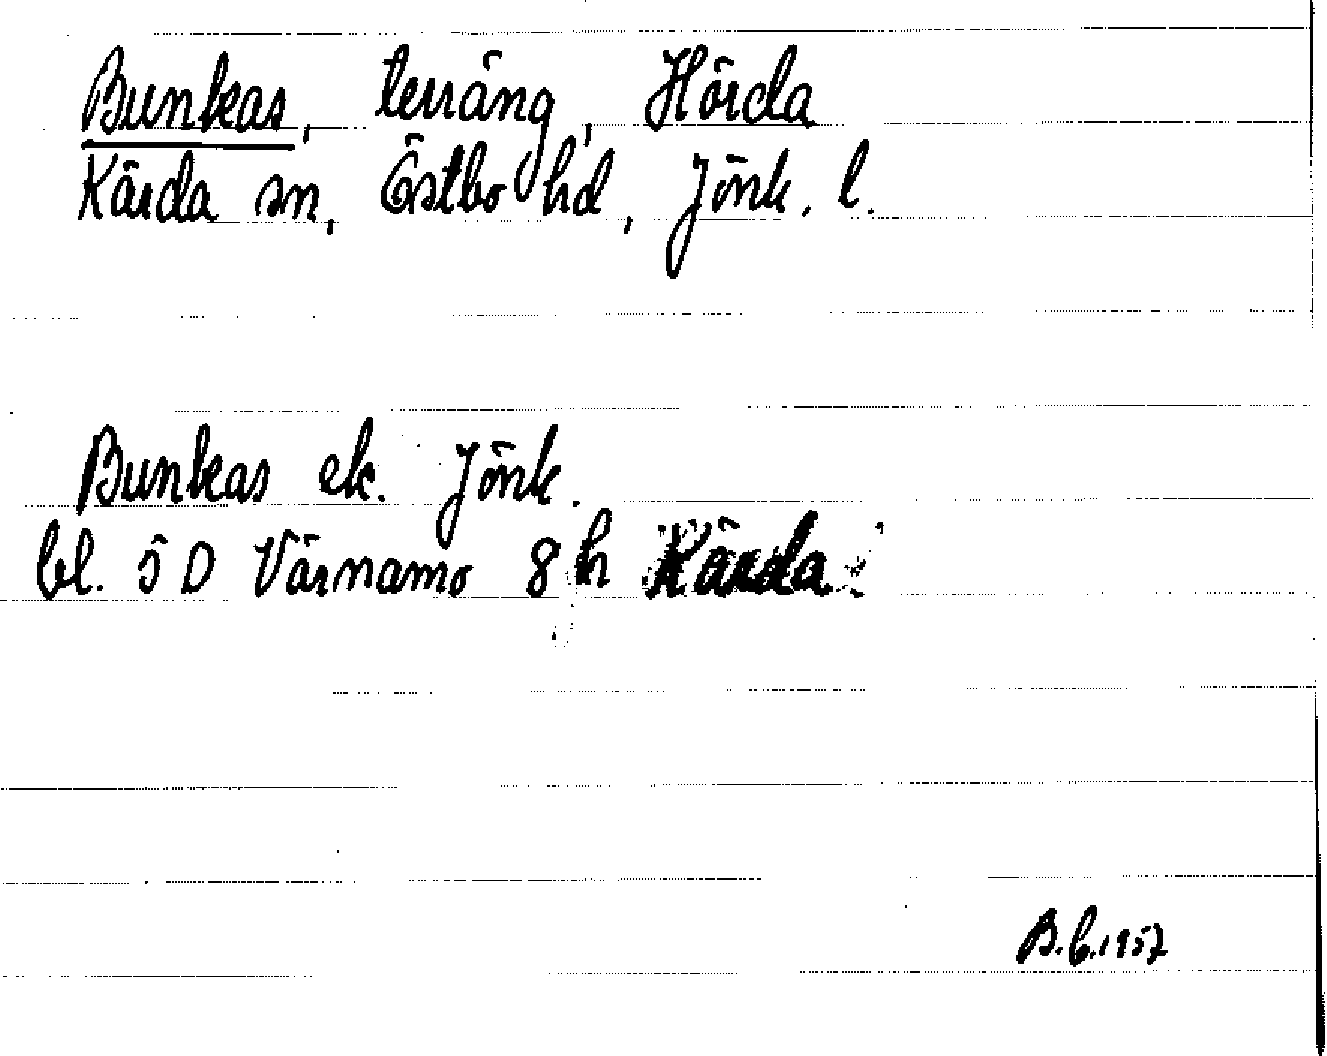 Bunkas, terräng, Hörda
Kärda sn, Östbo hd, Jönk. l.
Bunkas ek. Jönk.
bl. 5 D Värnamo 8 h Kärda
B.G.1957